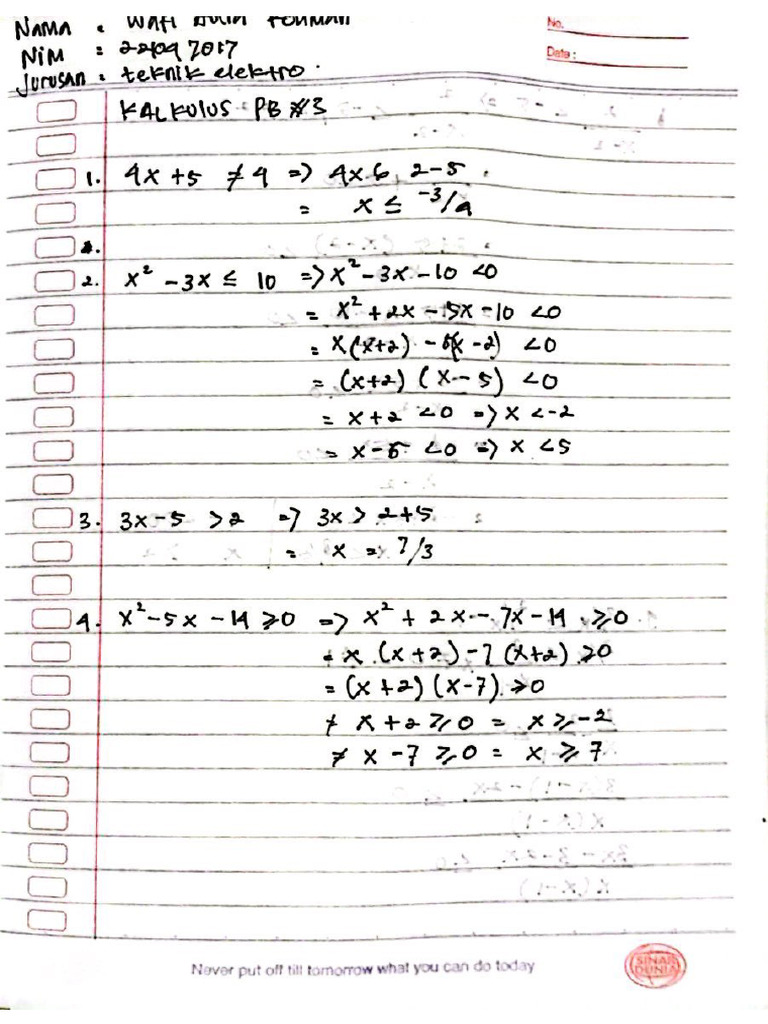 NAMA : WAFI AULIA
NIM : 22097017
Jurusan : teknik elektro.
No.
Date :
KALKULUS PB #3
1. 4x + 5 ≠ 4 => 4x 6 2-5
= x ≤ -3/4
2.
2. x² - 3x ≤ 10 => x² - 3x - 10 <0
= x² + 2x - 5x - 10 <0
= x(x+2) - 5(x-2) <0
= (x+2) (x-5) <0
= x+2 <0 => x <-2
= x-5 <0 => x <5
3. 3x-5 >2 => 3x > 2+5
= x = 7/3
4. x²-5x -14 ≥0 => x² + 2x - 7x-14 ≥0
= x (x+2) -7 (x+2) ≥0
= (x+2) (x-7) ≥0
≠ x+2 ≥0 = x ≥ -2
≠ x -7 ≥0 = x ≥ 7
Never put off till tomorrow what you can do today
SINAR DUNIA